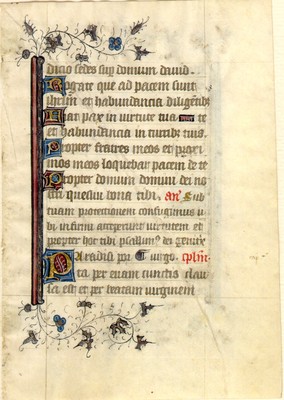 dicio sedes sup domum dauid.
Rogate que ad pacem sunt
ihrlm et habundancia diligentib
Fiat pax in uirtute tua te
et habundancia in turrib tuis
Propter fratres meos et proxi
mos meos loquebar pacem de te
Propter domum domini dei no
stri quesiui bona tibi. an Sub
tuam protectionem confugimus u
bi infirmi acceperunt uirtutem et
propter hoc tibi psallimus dei genitrix
uirgo. cplm
ta per euam cunctis clau
sa est et per beatam uirginem